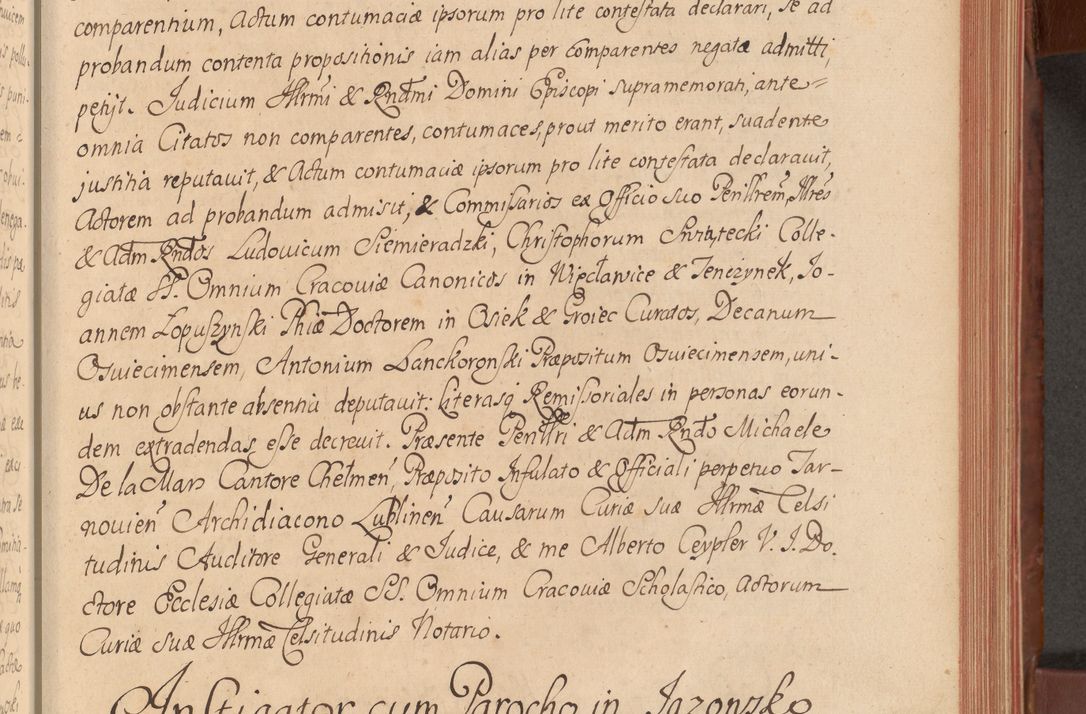 comparentium, Actum contumaciæ ipsorum pro lite contestata declarari, se ad
probandum contenta propositionis iam alias per comparentes negatæ admitti,
petijt. Judicium Illrmi & Rndmi Domini Episcopi supramemorati, ante=
omnia Citatos non comparentes, contumaces, prout merito erant, suadente
justitia reputavit, & Actum contumaciæ ipsorum pro lite contestata declaravit,
Actorem ad probandum admisit, & Commissarios ex Officio suo Perillrem, Illres
& Adm Rndos Ludovicum Siemieradzki, Christophorum Colle-
giatæ SS. Omnium Cracoviæ Canonicos in Więcławice & Tenczynek, Jo-
annem Łopuszynski Phiæ Doctorem in Osiek & Groiec Curatos, Decanum
Osviecimensem, Antonium Lanckoronski Præpositum Osviecimensem, uni-
us non obstante absentia deputavit: Literasq Remissoriales in personas eorun-
dem extradendas esse decrevit. Præsente Perillri & Adm Rndo Michaele
De la Mars Cantore Chełmen, Præposito Infulato & Officiali perpetuo Tar-
novien Archidiacono Lublinen Causarum Curiæ suæ Illrmæ Celsi
tudinis Auditore Generali & Judice, & me Alberto Ceypler V. J. Do.
ctore Ecclesiæ Collegiatæ SS. Omnium Cracoviæ Scholastico, Actorum
Curiæ suæ Illrmæ Celsitudinis Notario.
Instigator cum Parocho in Jazonsko